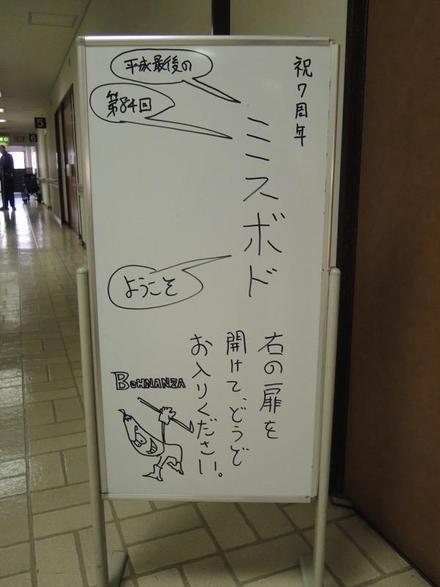 祝7周年
平成最後の
第84回
ミスボド
ようこそ
右の扉を
開けて、どうぞ
お入りください。
BOHNANZA
5
6